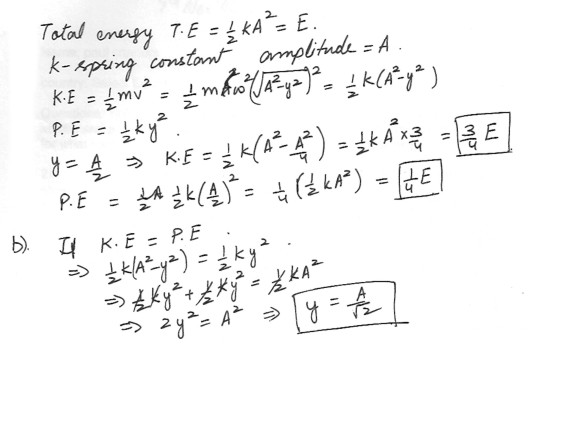 Total energy T.E = ½ kA² = E.
k-spring constant amplitude = A.
K.E = ½ mv² = ½ mω²(√A²-y²)² = ½ k(A²-y²)
P.E = ½ ky².
y = A/2 ⇒ K.E = ½ k(A² - A²/4) = ½ kA² × 3/4 = 3/4 E
P.E = ½ k(A/2)² = ¼ (½ kA²) = ¼ E
b). If K.E = P.E.
⇒ ½ k(A²-y²) = ½ ky².
⇒ ½ ky² + ½ ky² = ½ kA²
⇒ 2y² = A² ⇒ y = A/√2